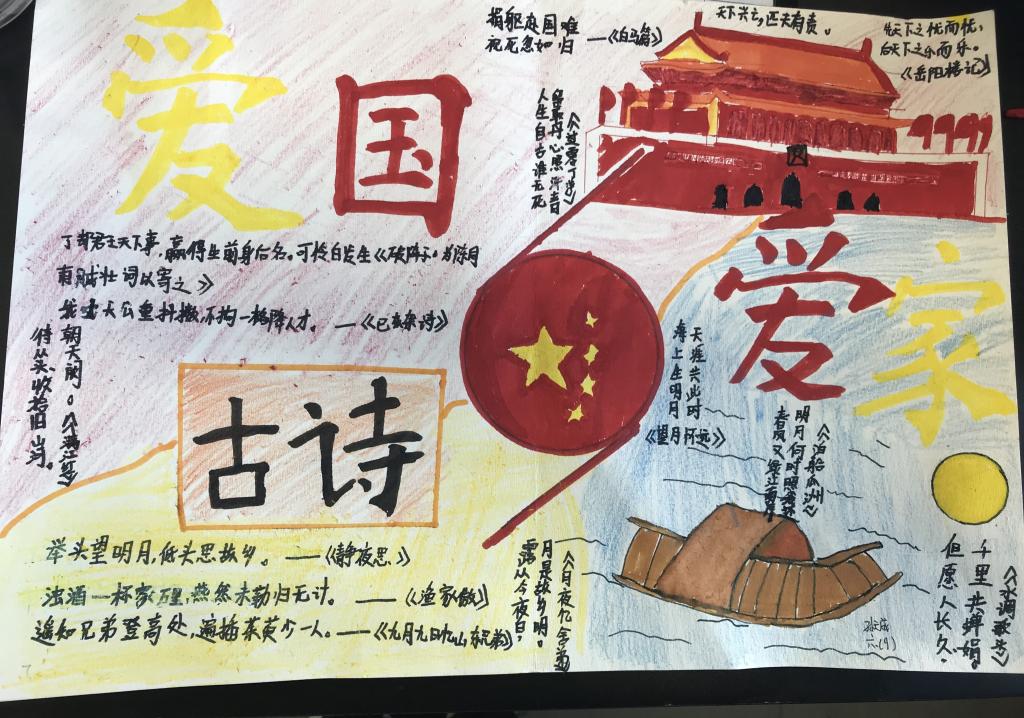 爱国
捐躯赴国难
视死忽如归 ——《白马篇》
天下兴亡,匹夫有责。
先天下之忧而忧,
后天下之乐而乐。
《岳阳楼记》
人生自古谁无死
留取丹心照汗青
《过零丁洋》
了却君王天下事,赢得生前身后名。可怜白发生《破阵子·为陈同
甫赋壮词以寄之》
我劝天公重抖擞,不拘一格降人才。——《己亥杂诗》
待从头,收拾旧山河。
朝天阙。《满江红》
古诗
爱家
海上生明月
天涯共此时
《望月怀远》
春风又绿江南岸
明月何时照我还
《泊船瓜洲》
举头望明月,低头思故乡。——《静夜思》
浊酒一杯家万里,燕然未勒归无计。——《渔家傲》
遥知兄弟登高处,遍插茱萸少一人。——《九月九日忆山东兄弟》
露从今夜白,
月是故乡明。
《月夜忆舍弟》
但愿人长久,
千里共婵娟。
《水调歌头》
六(9)